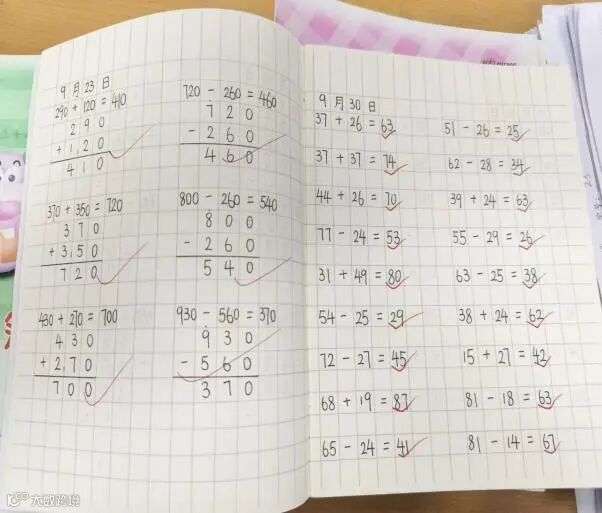 9月23日
290+120=410
290
+120
410
370+350=720
370
+350
720
430+270=700
430
+270
700
720-260=460
720
-260
460
800-260=540
800
-260
540
930-560=370
930
-560
370
9月30日
37+26=63
37+37=74
44+26=70
77-24=53
31+49=80
54-25=29
72-27=45
68+19=87
65-24=41
51-26=25
62-28=34
39+24=63
55-29=26
63-25=38
38+24=62
15+27=42
81-18=63
81-14=67
大数跨境